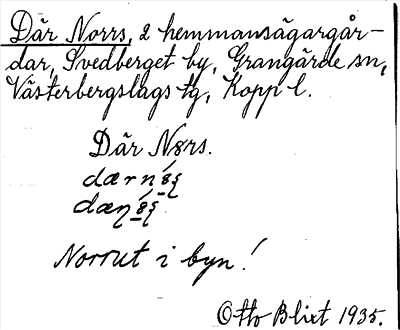 Där Norrs, 2 hemmansägargår-
dar, Svedberget by, Grangärde sn,
Västerbergslags tg, Kopp l.
Där N8rs.
Norrut i byn!
Otto Blixt 1935.